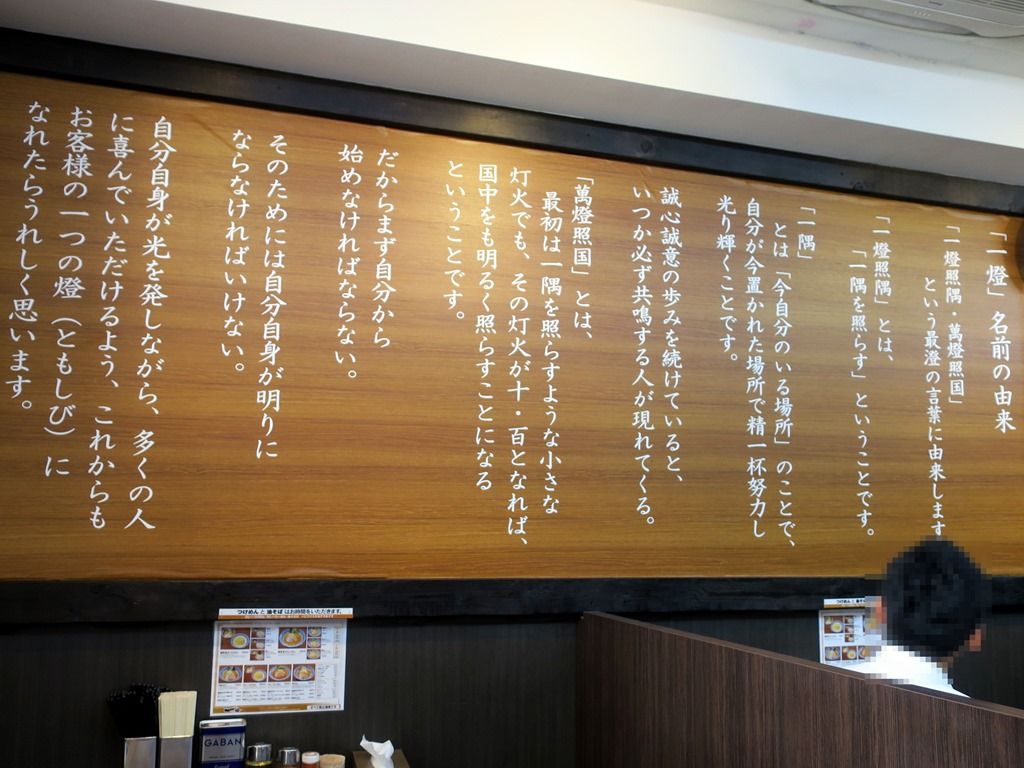 「一燈」名前の由来
「一燈照隅・萬燈照国」
という最澄の言葉に由来します
「一燈照隅」とは、
「一隅を照らす」ということです。
「一隅」
とは「今自分のいる場所」のことで、
自分が今置かれた場所で精一杯努力し
光り輝くことです。
誠心誠意の歩みを続けていると、
いつか必ず共鳴する人が現れてくる。
「萬燈照国」とは、
最初は一隅を照らすような小さな
灯火でも、その灯火が十・百となれば、
国中をも明るく照らすことになる
ということです。
だからまず自分から
始めなければならない。
そのためには自分自身が明りに
ならなければいけない。
自分自身が光を発しながら、多くの人
に喜んでいただけるよう、これからも
お客様の一つの燈（ともしび）に
なれたらうれしく思います。
つけめんと油そばはお時間をいただきます。
GABAN